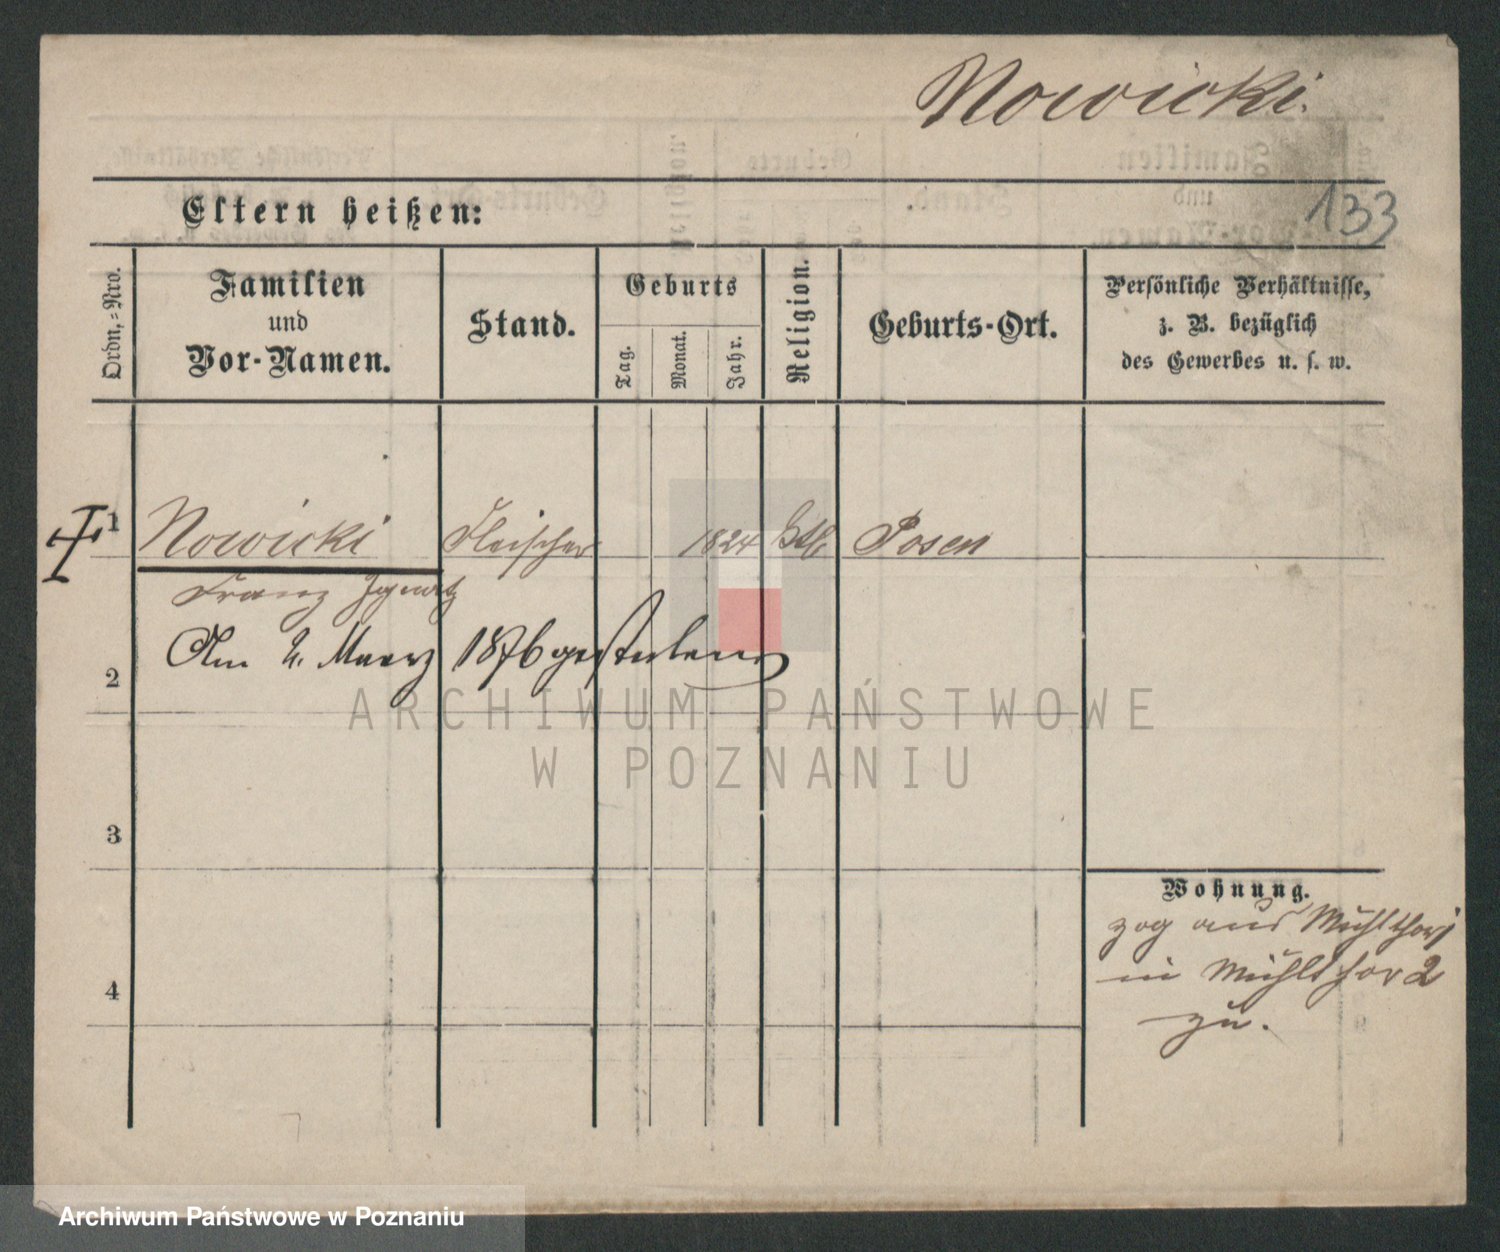 Nowicki.
133
Eltern heißen:
Ordn.-Nro.
Familien
und
Vor-Namen.
Stand.
Geburts
Tag.
Monat.
Jahr.
Religion.
Geburts-Ort.
Persönliche Verhältnisse,
z. B. bezüglich
des Gewerbes u. s. w.
1 Nowicki Fleischer 1824 Posen
Franz Ignatz
Am 2. Maerz 1876 gestorben
2
3
4
Wohnung.
zog aus Mühlthor
in Mühlthor 2
zu.
ARCHIWUM PAŃSTWOWE
W POZNANIU
Archiwum Państwowe w Poznaniu